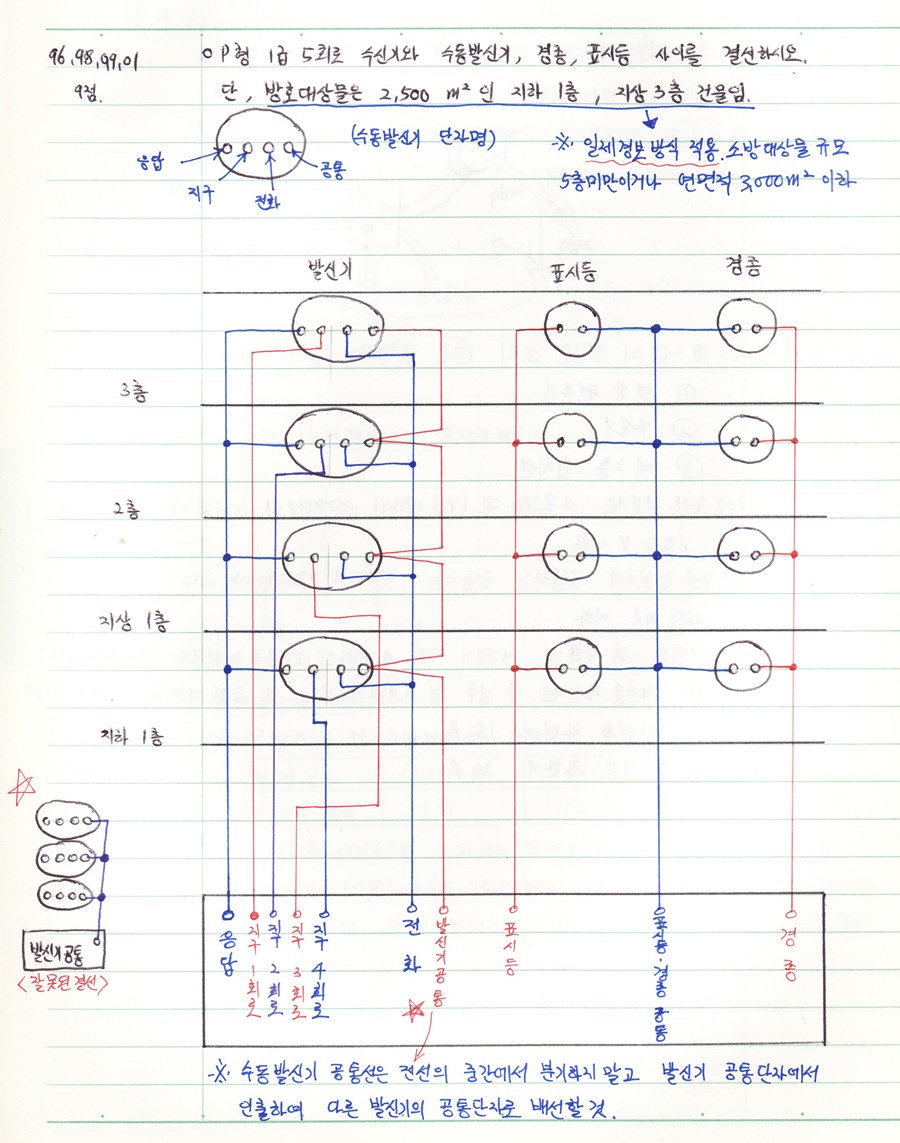 96, 98, 99, 01
9점.
○ P형 1급 5회로 수신기와 수동발신기, 경종, 표시등 사이를 결선하시오.
단, 방호대상물은 2,500 m² 인 지하 1층, 지상 3층 건물임.
(수동발신기 단자명)
응답
지구
전화
공통
※ 일제경보방식 적용. 소방대상물 규모
5층미만이거나 연면적 3,000m² 이하
발신기
표시등
경종
3층
2층
지상 1층
지하 1층
발신기 공통
<잘못된 결선>
응답
지구 1회로
지구 2회로
지구 3회로
지구 4회로
전화
발신기 공통
표시등
표시등·경종 공통
경종
※ 수동발신기 공통선은 전선의 중간에서 분기하지 말고 발신기 공통단자에서
인출하여 다른 발신기의 공통단자로 배선할 것.